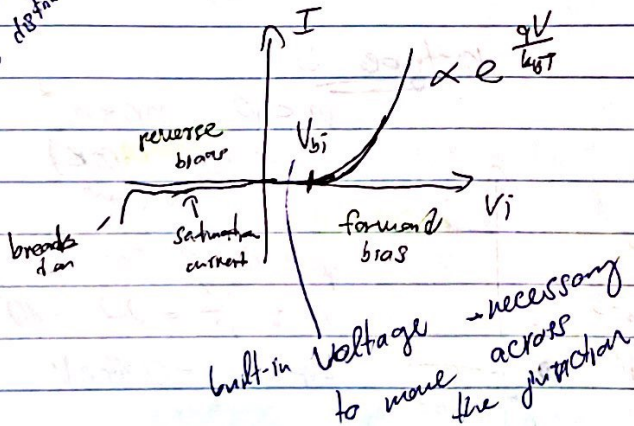 I
∝ e^{qV/k_BT}
reverse
bias
V_bi
V_j
saturation
current
forward
bias
built-in voltage - necessary
to move across
the junction